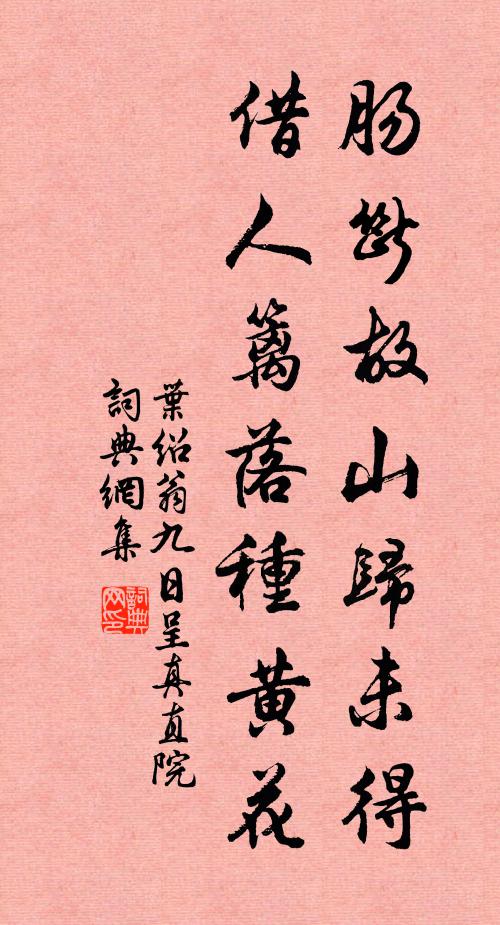 肠斷故山歸未得
借人籬落種黄花
葉紹翁九日呈真直院
詞典網集
詞典网印